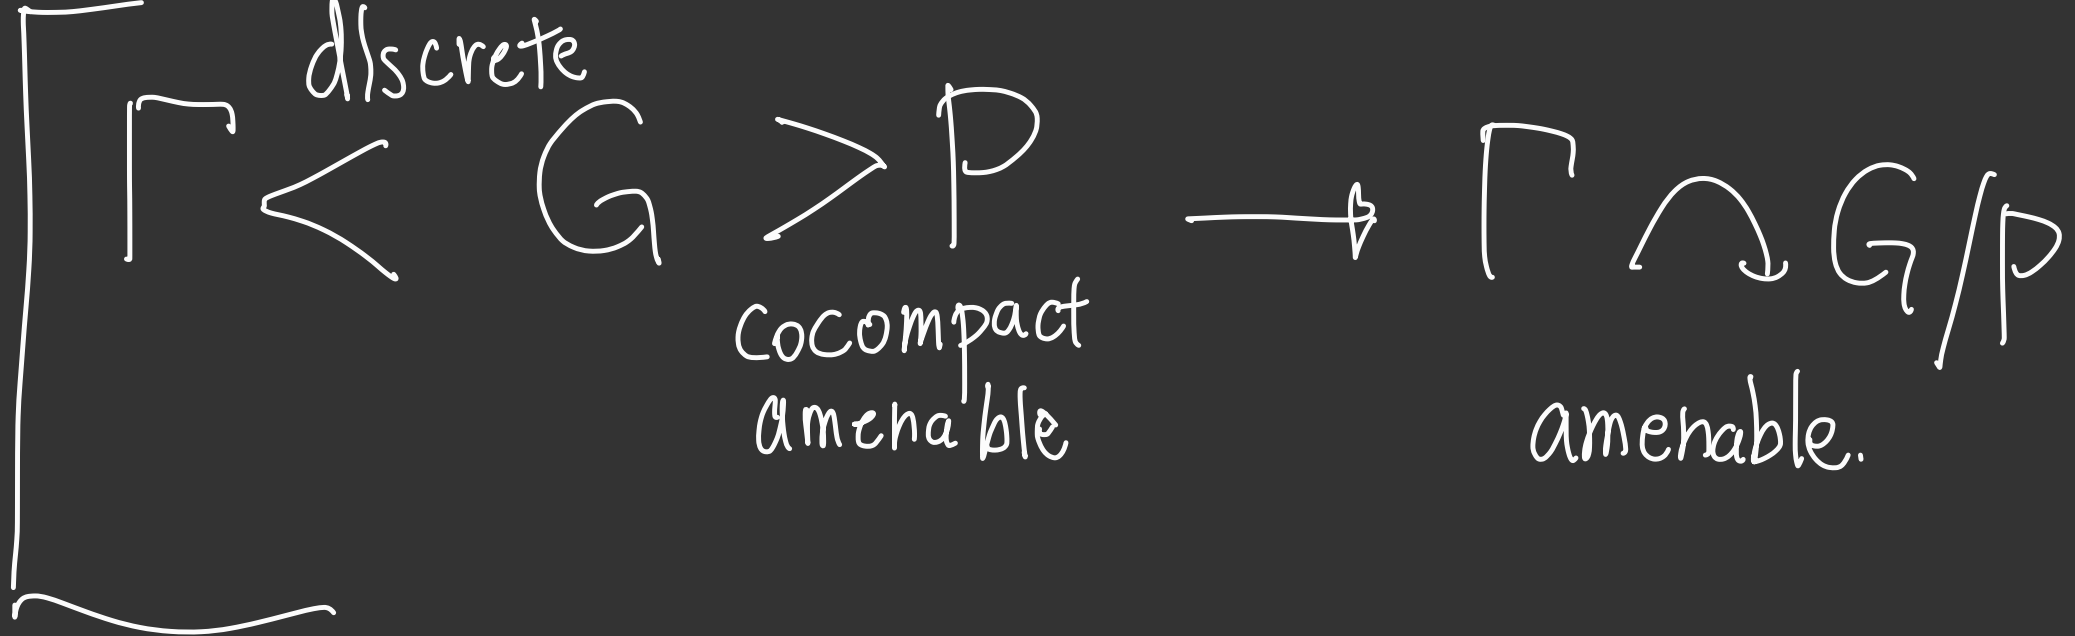 discrete
Γ < G > P → Γ ↷ G/P
cocompact
amenable amenable.